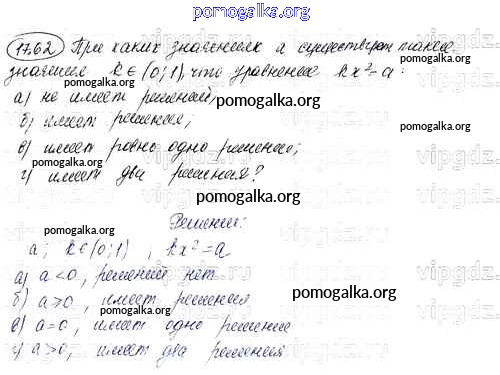 pomogalka.org
17.62 При каких значениях a существует такое
значение k∈(0;1), что уравнение kx²=a:
pomogalka.org
а) не имеет решений,
pomogalka.org
б) имеет решения;
pomogalka.org
в) имеет ровно одно решение;
pomogalka.org
г) имеет два решения?
pomogalka.org
Решение:
pomogalka.org
a; k∈(0;1), kx²=a
pomogalka.org
а) a<0, решений нет
б) a≥0, имеет решения
pomogalka.org
в) a=0, имеет одно решение
pomogalka.org
г) a>0, имеет два решения
vipgdz.